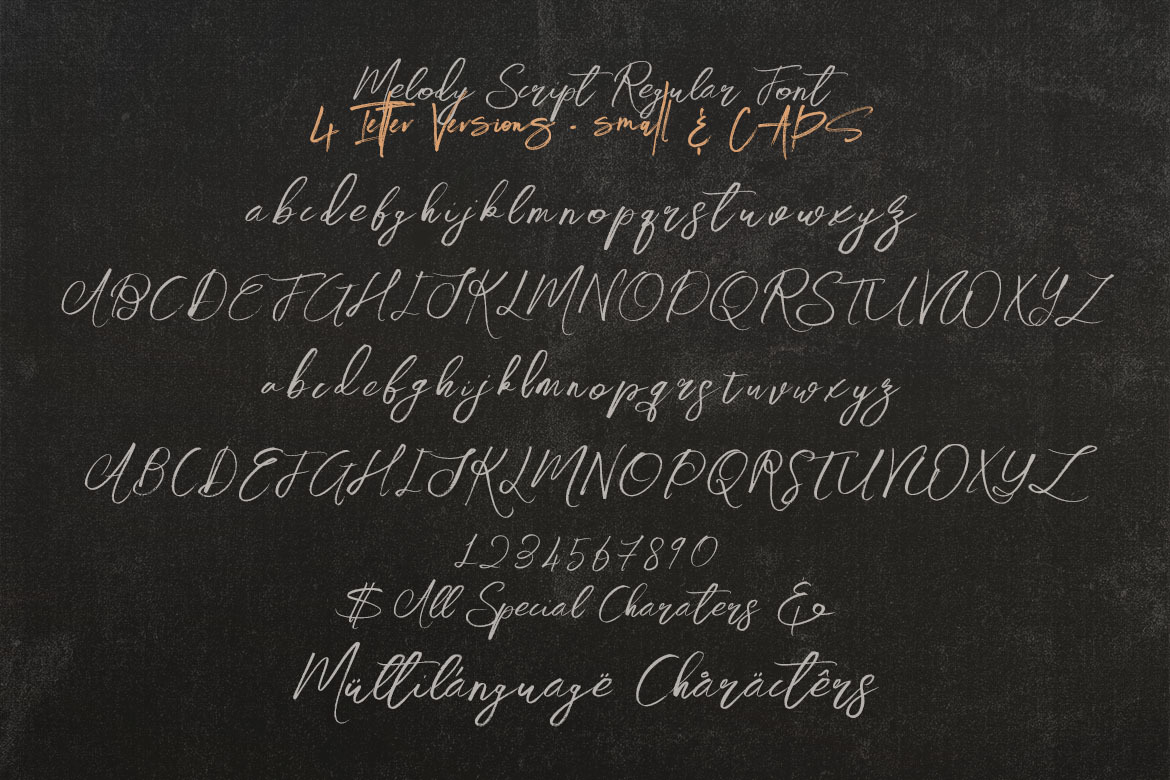 Melody Script Regular Font
4 letter Versions . small & CAPS
abcdefghijklmnopqrstuvwxyz
ABCDEFGHIJKLMNOPQRSTUVWXYZ
abcdefghijklmnopqrstuvwxyz
ABCDEFGHIJKLMNOPQRSTUVWXYZ
1234567890
$ All Special Charaters &
Mültilánguagë Chåräctêrs